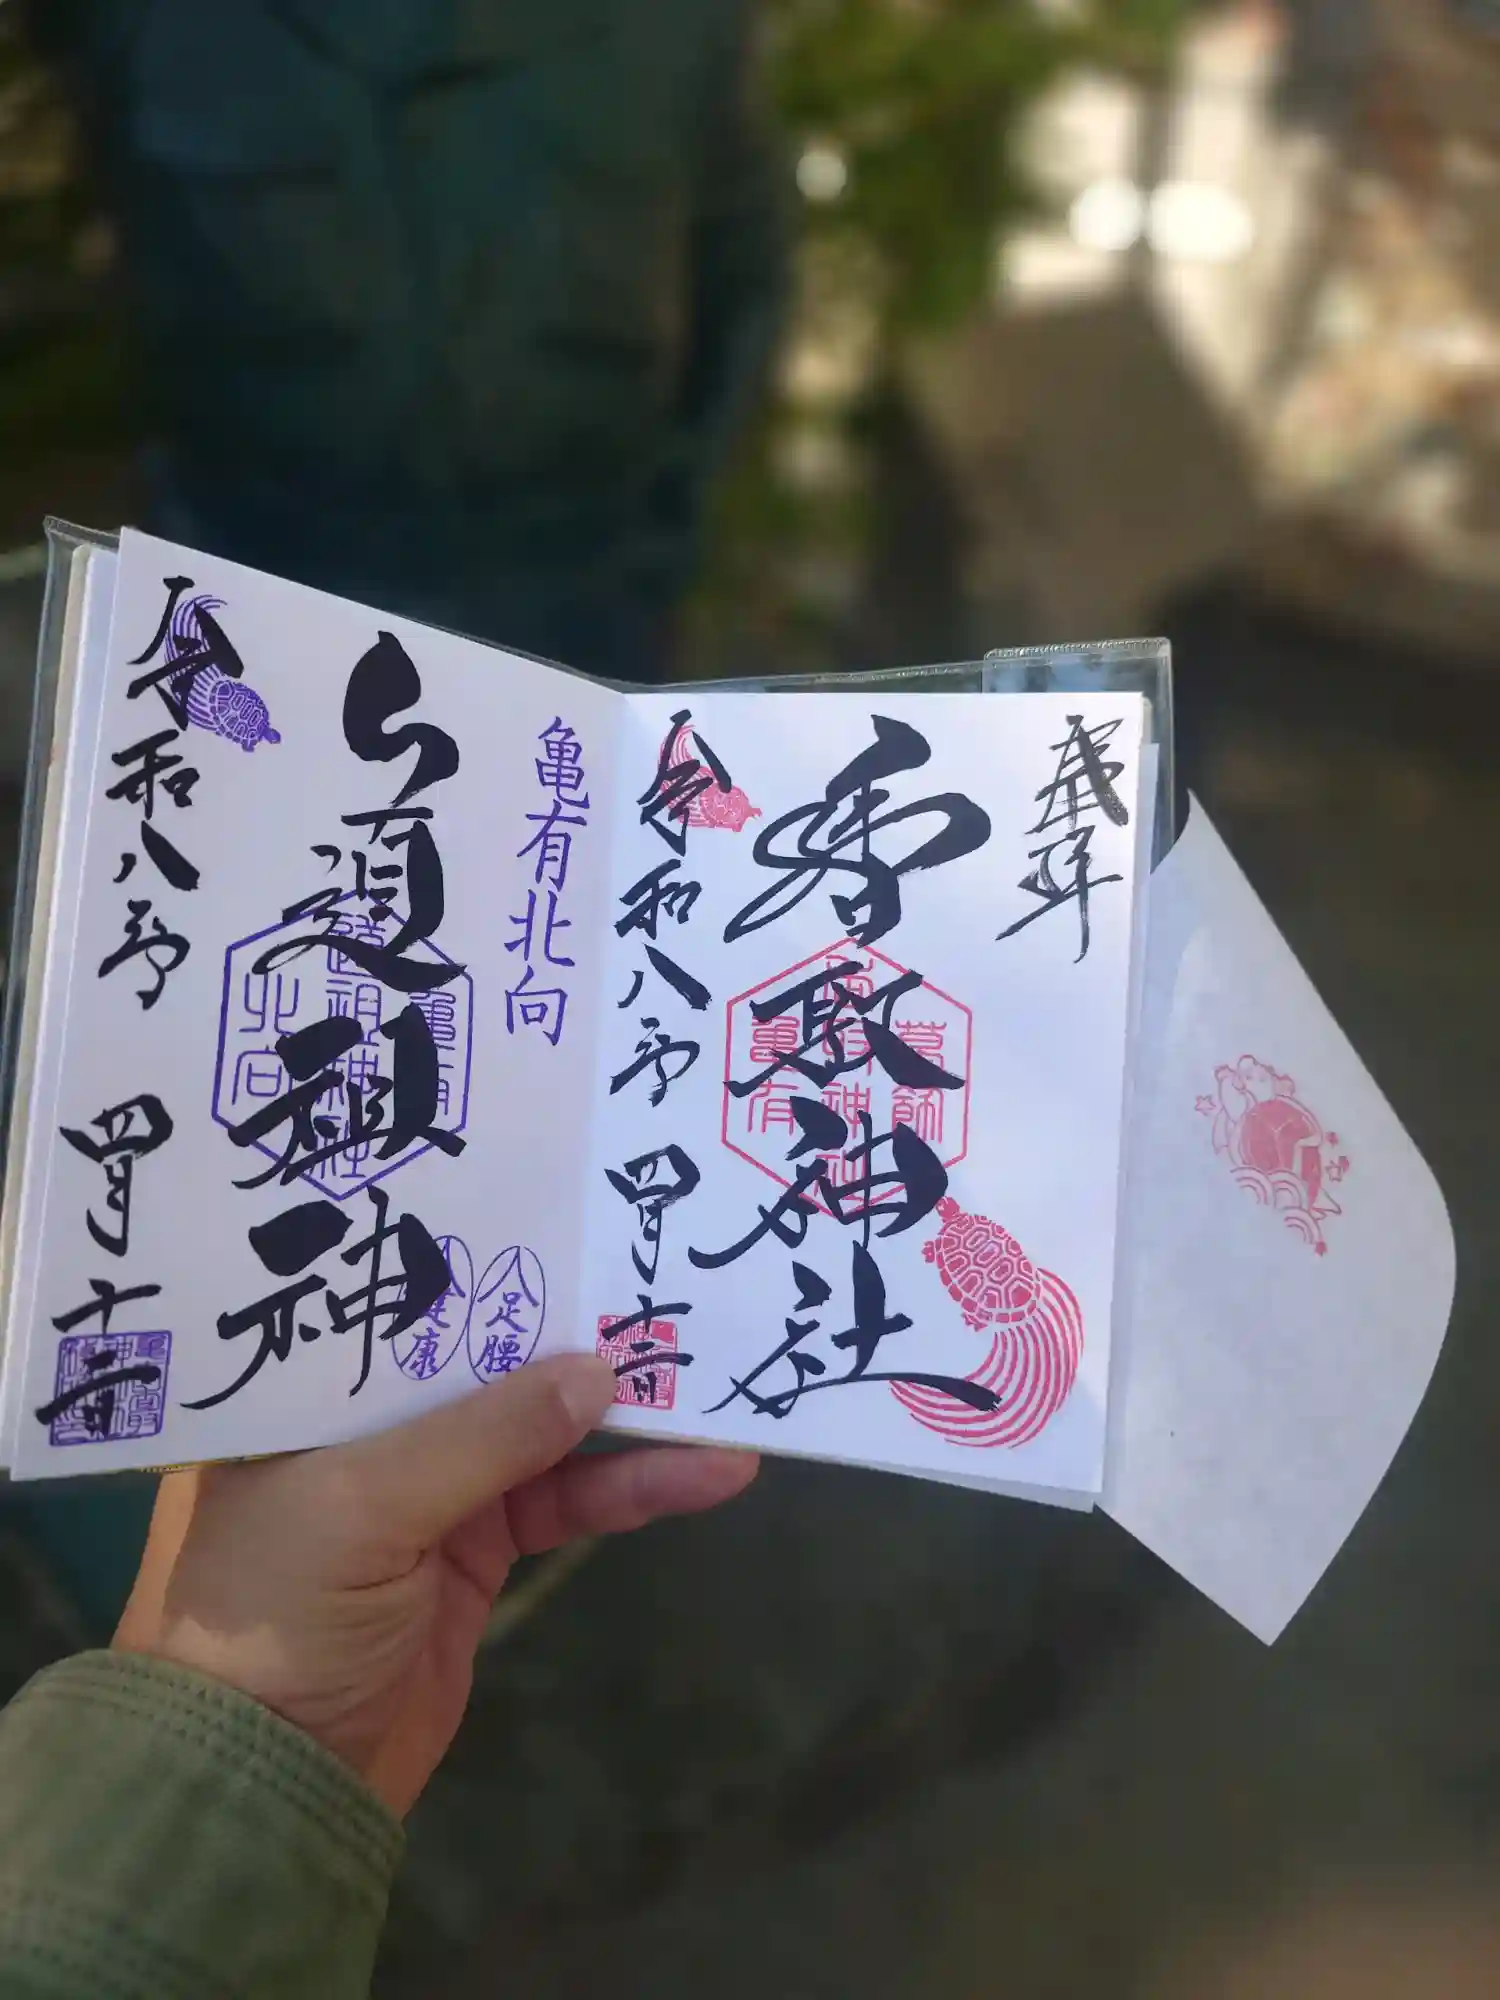 奉拝
香取神社
令和八年
四月十二日
亀有北向
道祖神
足腰
健康
令和八年
四月十二日
亀有
香取神社
亀有
道祖神社
北向